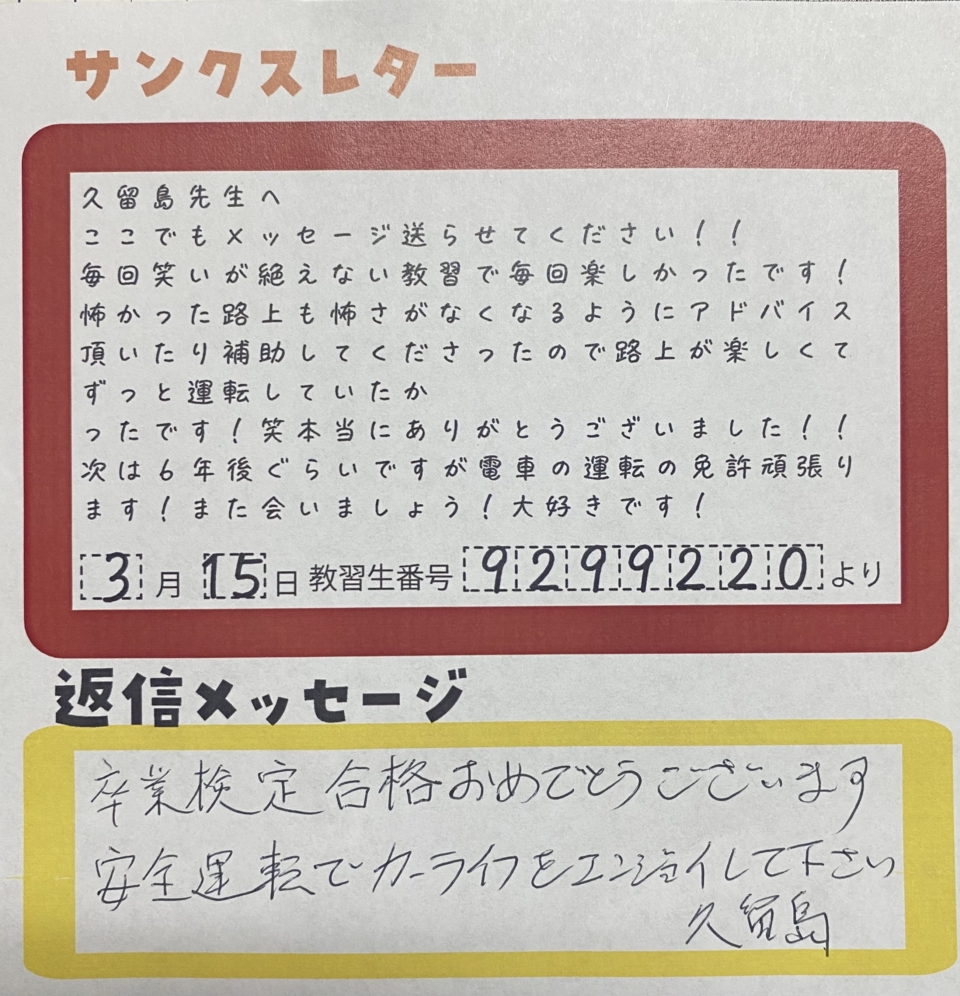 サンクスレター
久留島先生へ
ここでもメッセージ送らせてください！！
毎回笑いが絶えない教習で毎回楽しかったです！
怖かった路上も怖さがなくなるようにアドバイス
頂いたり補助してくださったので路上が楽しくて
ずっと運転していたか
ったです！笑本当にありがとうございました！！
次は6年後ぐらいですが電車の運転の免許頑張り
ます！また会いましょう！大好きです！
3月 15日 教習生番号 9299220より
返信メッセージ
卒業検定合格おめでとうございます
安全運転でカーライフをエンジョイして下さい
久留島